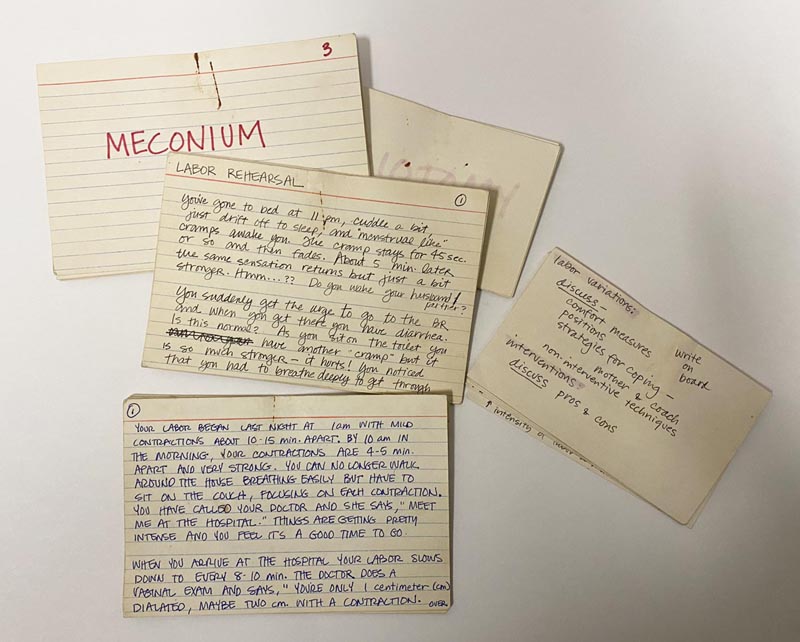 3
MECONIUM
LABOR REHEARSAL
1
You've gone to bed at 11 pm, cuddle a bit,
just drift off to sleep, and "menstrual like"
cramps awake you. The cramp stays for 45 sec.
or so and then fades. About 5 min. later
the same sensation returns but just a bit
stronger. Hmm...?? Do you wake your husband/
partner?
You suddenly get the urge to go to the BR
and when you get there you have diarrhea.
Is this normal? As you sit on the toilet you
have another "cramp" but it
is so much stronger – it hurts! You noticed
that you had to breathe deeply to get through
labor variations:
discuss –
comfort measures
positions
strategies for coping –
mother & coach
non-interventive techniques
interventions:
discuss pros & cons
write
on
board
↑ intensity of
1
YOUR LABOR BEGAN LAST NIGHT AT 1am WITH MILD
CONTRACTIONS ABOUT 10-15 min. APART. BY 10 am IN
THE MORNING, YOUR CONTRACTIONS ARE 4-5 min.
APART AND VERY STRONG. YOU CAN NO LONGER WALK
AROUND THE HOUSE BREATHING EASILY BUT HAVE TO
SIT ON THE COUCH, FOCUSING ON EACH CONTRACTION.
YOU HAVE CALLED YOUR DOCTOR AND SHE SAYS, "MEET
ME AT THE HOSPITAL." THINGS ARE GETTING PRETTY
INTENSE AND YOU FEEL IT'S A GOOD TIME TO GO.
WHEN YOU ARRIVE AT THE HOSPITAL YOUR LABOR SLOWS
DOWN TO EVERY 8-10 min. THE DOCTOR DOES A
VAGINAL EXAM AND SAYS, "YOU'RE ONLY 1 centimeter (cm)
DIALATED, MAYBE TWO cm. WITH A CONTRACTION. OVER